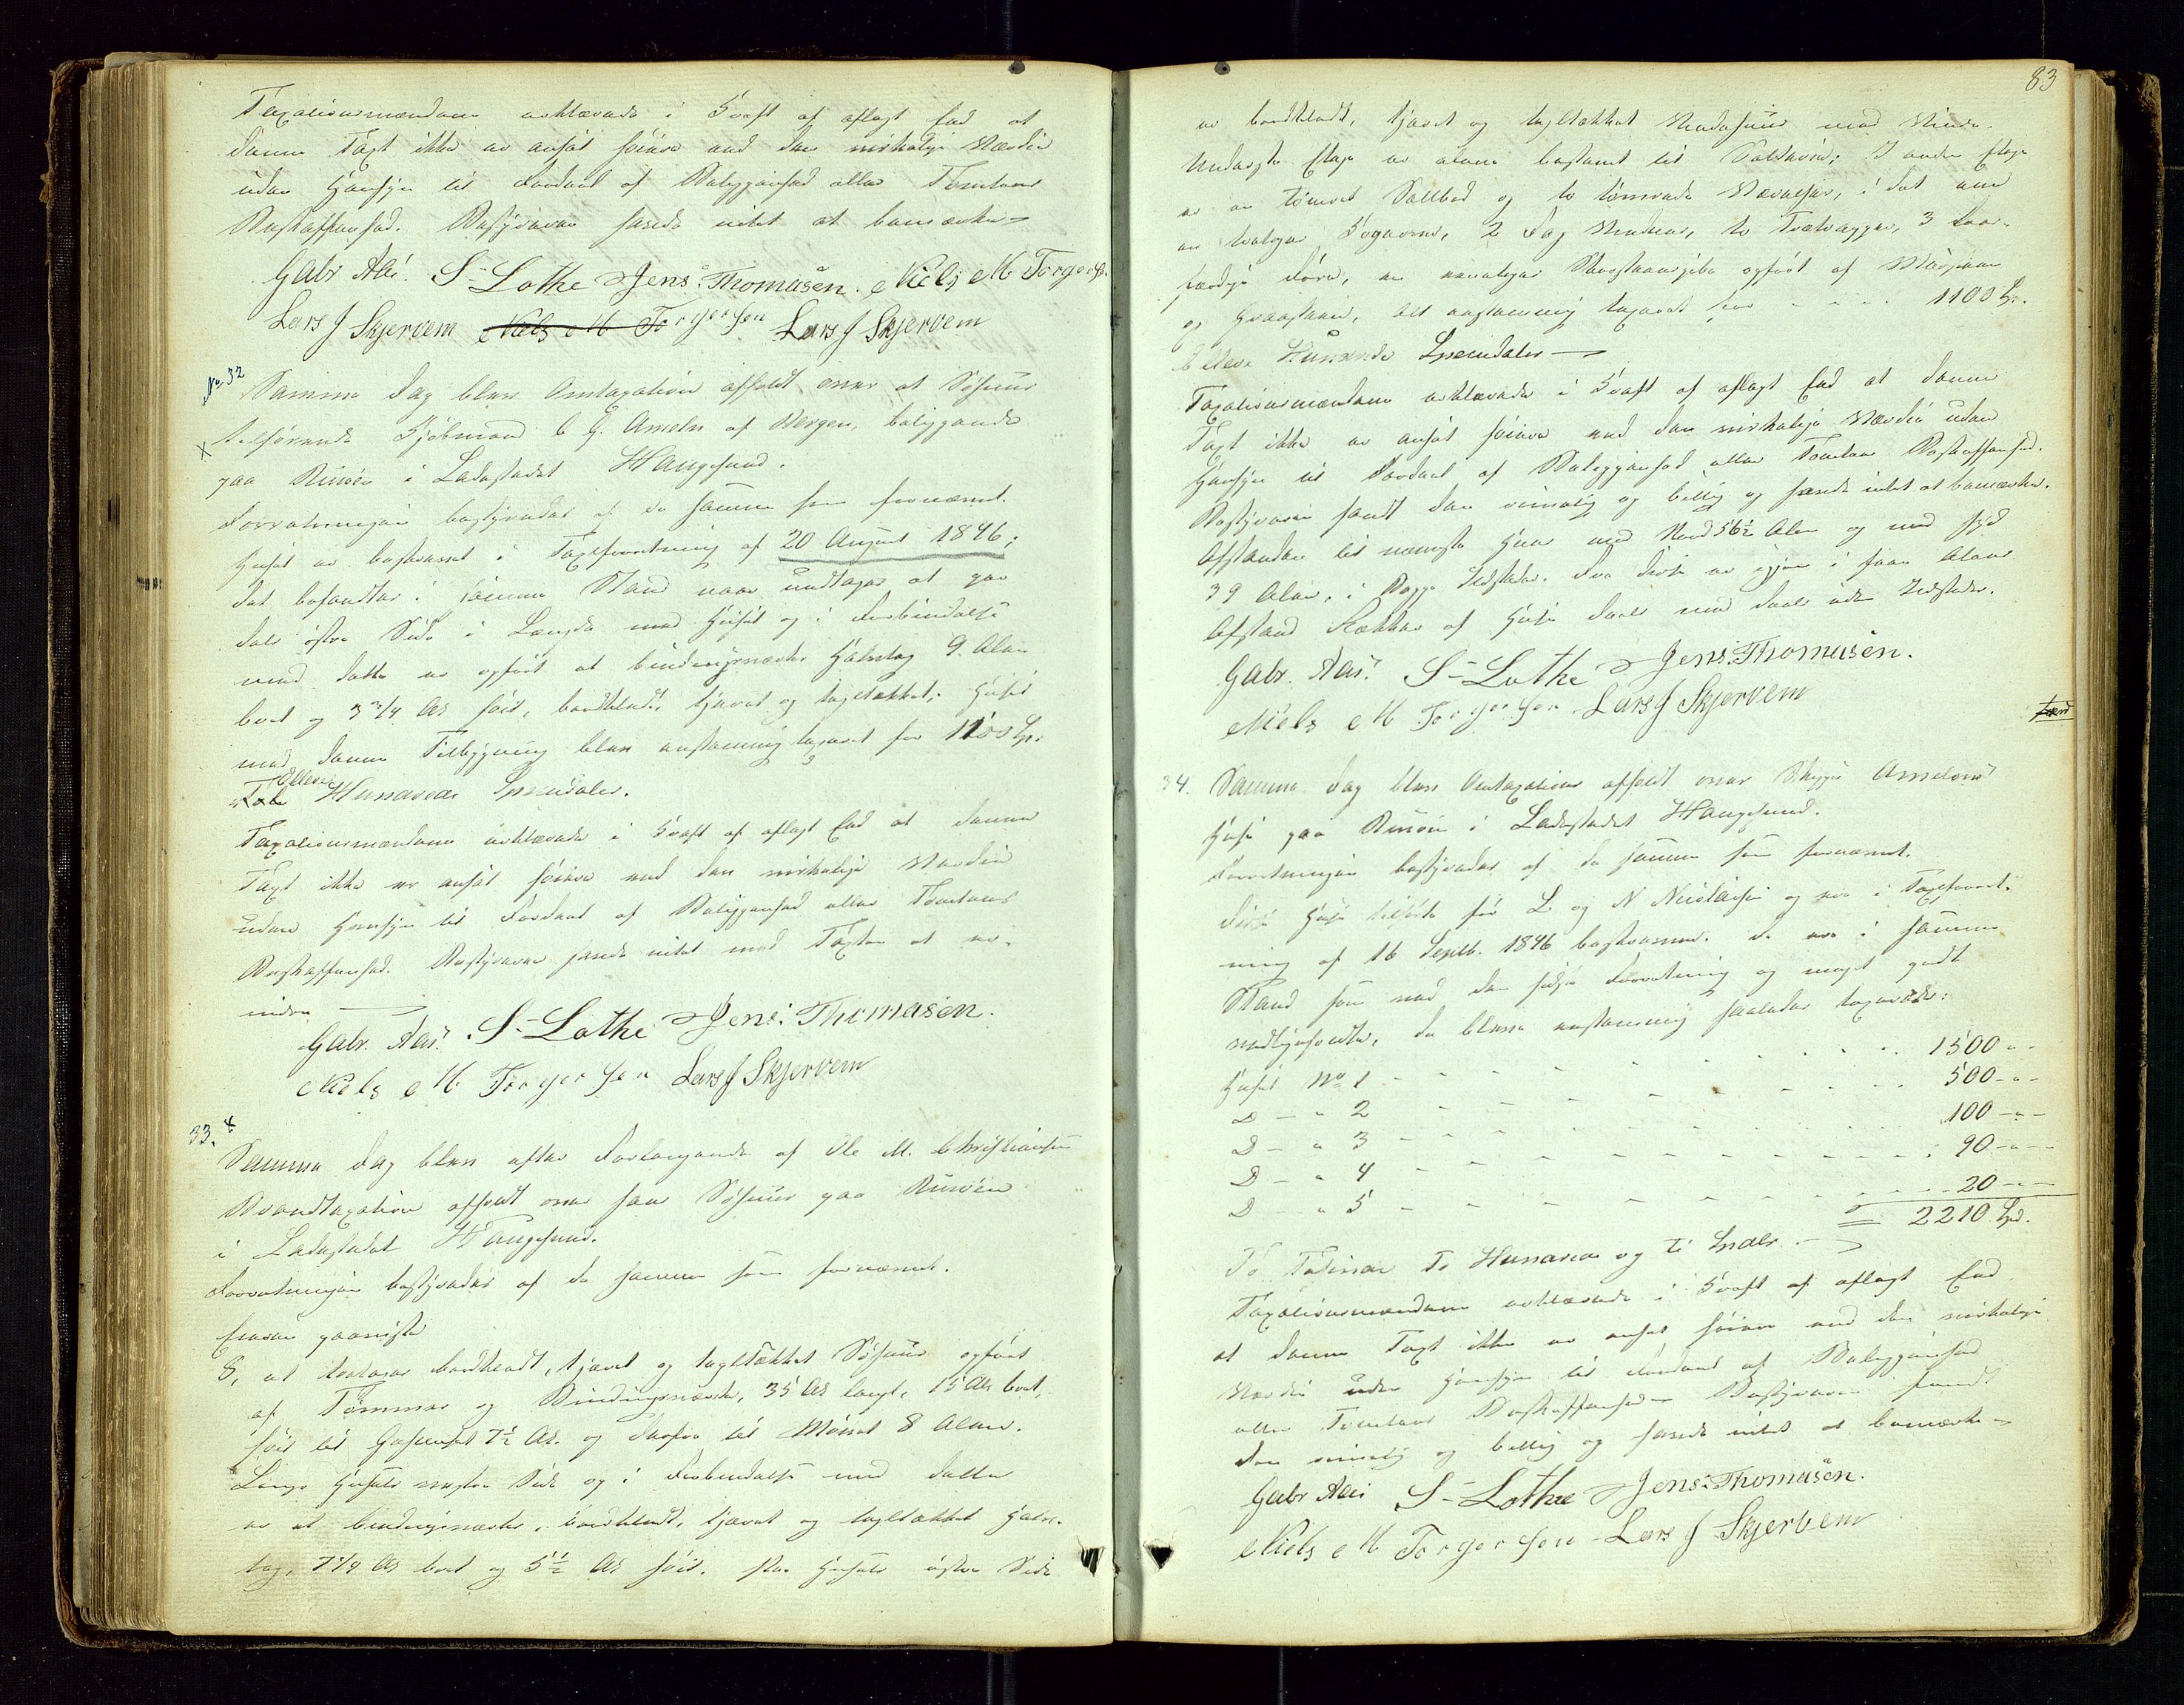 Taxationsmændene erklærede i Kraft af aflagt Eed at
denne Taxt ikke er ansat høiere end den virkelige Værdie
uden Hensyn til Fordeel af Beliggenhed eller Tomtens
Beskaffenhed. Bestyreren havde intet at bemærke
Gabr Aas. S Lothe Jens Thomasen. Niels M Torgersen
Lars J Skjervem Niels M Torgersen Lars J Skjervem
No 32
Samme Dag blev Omtaxation afholdt over et Søhuus
tilhørende Kjøbmand C G. Ameln af Bergen, beliggende
paa Risøen i Ladestedet Haugesund.
Forretningen bestyredes af de samme som fornævnt.
Huset er beskrevet i Taxtforretning af 20 August 1846;
det befandtes i samme Stand naar undtages at paa
dets østre Side i Længde med Huset og i Forbindelse
med dette er opført et bindingsværks Halvtag 9 Alen
bred og 3 3/4 Al. høit, bordklædt, tjæret og tagtækket. Huset
med denne Tilbygning blev enstemmig taxeret for 1100 Spd.
Elleve Hundrede Speciedaler.
Taxationsmændene erklærede i Kraft af aflagt Eed at denne
Taxt ikke er ansat høiere end den virkelige Værdie
uden Hensyn til Fordeel af Beliggenhed eller Tomtens
Beskaffenhed. Bestyreren havde intet mod Taxten at er-
indre
Gabr. Aas. S Lothe Jens Thomasen.
Niels M Torgersen Lars J Skjervem
33.
Samme Dag blev efter Forlangende af Ole M. Christiansen
Brandtaxation afholdt over hans Søhuus paa Risøen
i Ladestedet Haugesund.
Forretningen bestyredes af de samme som fornævnt.
Eieren paaviste
8, et toetages bordklædt, tjæret og tagltækket Søhuus opført
af Tømmer og Bindingsværk, 35 Al langt, 15 Al. bredt,
høit til Gesimset 7½ Al. og derfra til Mønet 8 Alen.
Langs Husets vestre Side og i Forbindelse med dette
er et bindingsværks, bordklædt, tjæret og tagltækket Halv-
tag, 7 1/4 Al bred og 5½ Al høit. Paa Husets østre Side
83
er bordklædt, tjæret og tagltækket Vindehuus med Vinde.
Underste Etage er alene bestemt til Salterie; I anden Etage
er en tømret Saltbod og to tømrede Værelser, i det ene
en toetages Kogeovn, 2 Fag Vinduer, to Trætrapper, 3 Eer-
færdige Døre, en eenetages Skorsteenspibe opført af Muursteen
og Graasteen, Alt enstemmig taxeret for 1100 Spd.
Elleve Hundrede Speciedaler
Taxationsmændene erklærede i Kraft af aflagt Eed at denne
Taxt ikke er ansat høiere end den virkelige Værdie uden
Hensyn til Fordeel af Beliggenhed eller Tomtens Beskaffenhed.
Bestyreren fandt den rimelig og billig og havde intet at bemærke.
Afstanden til nærmeste Huus mod Nord 56½ Alen og mod Syd
39 Alen, i Begge Ildsteder. Fra disse er igjen i faae Alens
Afstand Rækker af Huse deels med deels uden Ildsteder.
Gabr. Aas. S Lothe Jens Thomasen.
Niels M Torgersen Lars J Skjervem
34. Samme Dag blev Omtaxation afholdt over Skipper Amelons
Huse paa Risøen i Ladestedet Haugesund.
Forretningen bestyredes af de samme som fornævnt.
Disse Huse tilhørte før L og N Nicolaisen og ere i Taxtforret-
ning af 16 Septb. 1846 beskrevne. De ere i samme
Stand som ved den sidste Forretning og meget godt
vedligeholdte, de bleve enstemmig saaledes taxerede:
Huset No 1 1500 "
D " 2 500 "
D " 3 100 "
D " 4 90 "
D " 5 20 "
2210 Spd.
To Tusinde To Hundrede og ti Spdlr
Taxationsmændene erklærede i Kraft af aflagt Eed
at denne Taxt ikke er ansat høiere end den virkelige
Værdie uden Hensyn til Fordeel af Beliggenhed
eller Tomtens Beskaffenhed. Bestyreren fandt
den rimelig og billig og havde intet at bemærke
Gabr Aas S Lothe Jens Thomasen.
Niels M Torgersen Lars J Skjervem